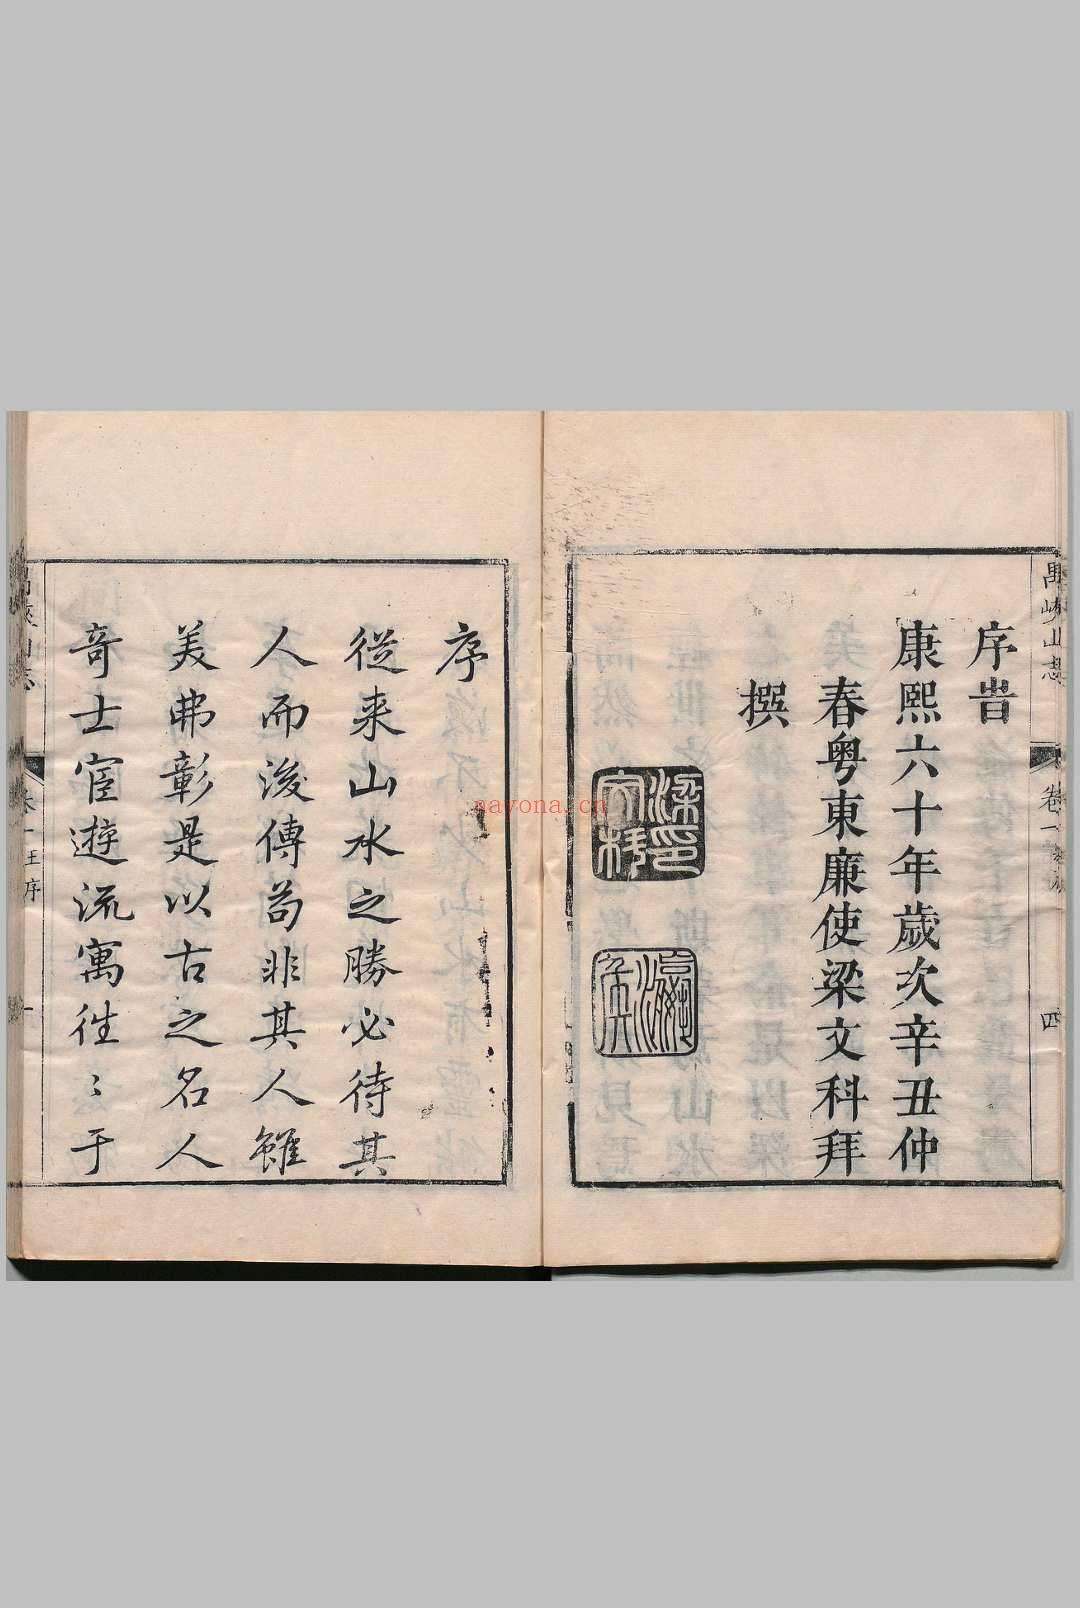 禺峽山志
卷一
四
序旹
康熙六十年歲次辛丑仲
春粤東廉使梁文科拜
撰
梁印文科
序
從来山水之勝必待其
人而後傳苟非其人雖
美弗彰是以古之名人
竒士宦遊流寓徃〻于
王序
一
navona.cn